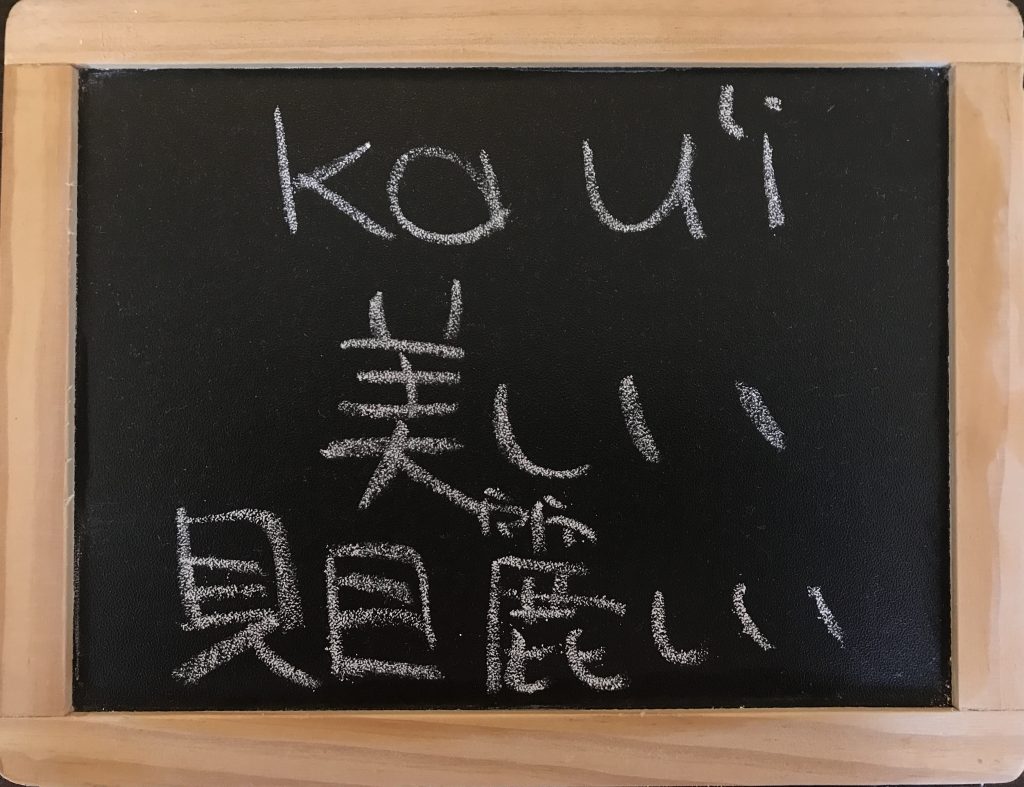 ka u'i
美しい
見目麗しい